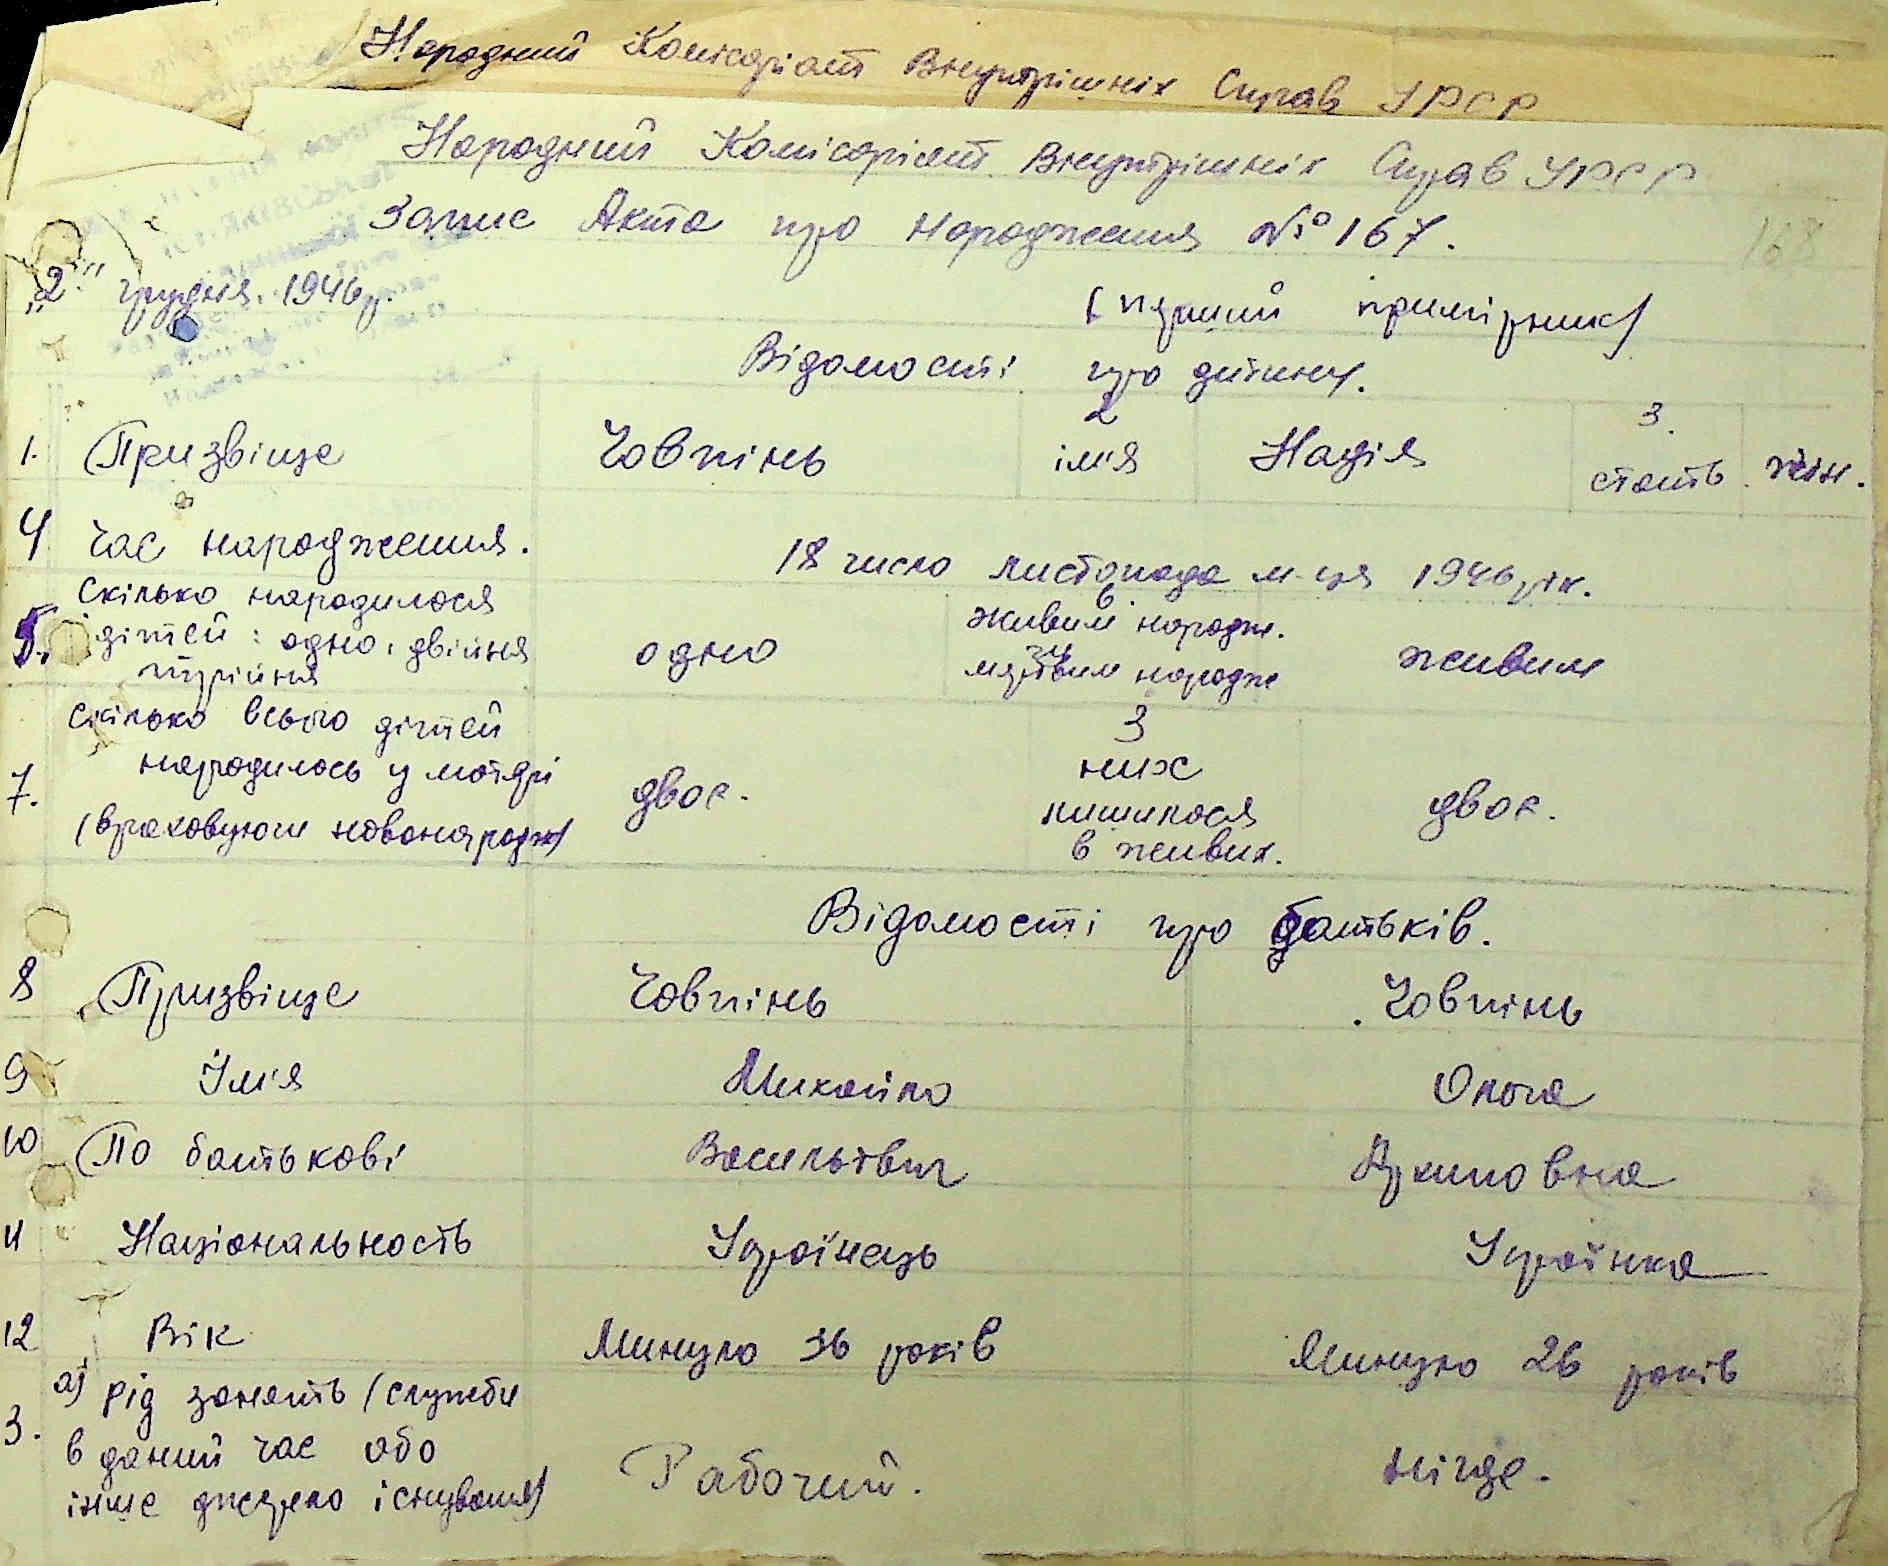 Народний Комісаріат Внутрішніх Справ УРСР
Народний Комісаріят Внутрішніх Справ УРСР
Запис Акта про народження № 167.
168
"2" грудня 1946р.
(перший примірник)
Відомості про дитину.
1. Призвіще Човпінь 2 імя Надія 3. стать жін.
4 Час народження. 18 число листопада м-ця 1946 рік.
5. Скілько народилося
дітей: одно, двійня
трійня
одно
6
живим народж.
чи
мертвим народж
живим
7. Скілько всього дітей
народилось у матері
(враховуючи новонародж)
двоє.
З
них
лишилося
в живих.
двоє.
Відомості про батьків.
8 Призвіще Човпінь Човпінь
9 Імя Михайло Ольга
10 По батькові Васильович Архиповна
11 Національность Українець Українка
12 Вік Минуло 36 років Минуло 26 років
3. а) рід занять (служби
в даний час або
інше джерело існування)
Рабочий. нігде.